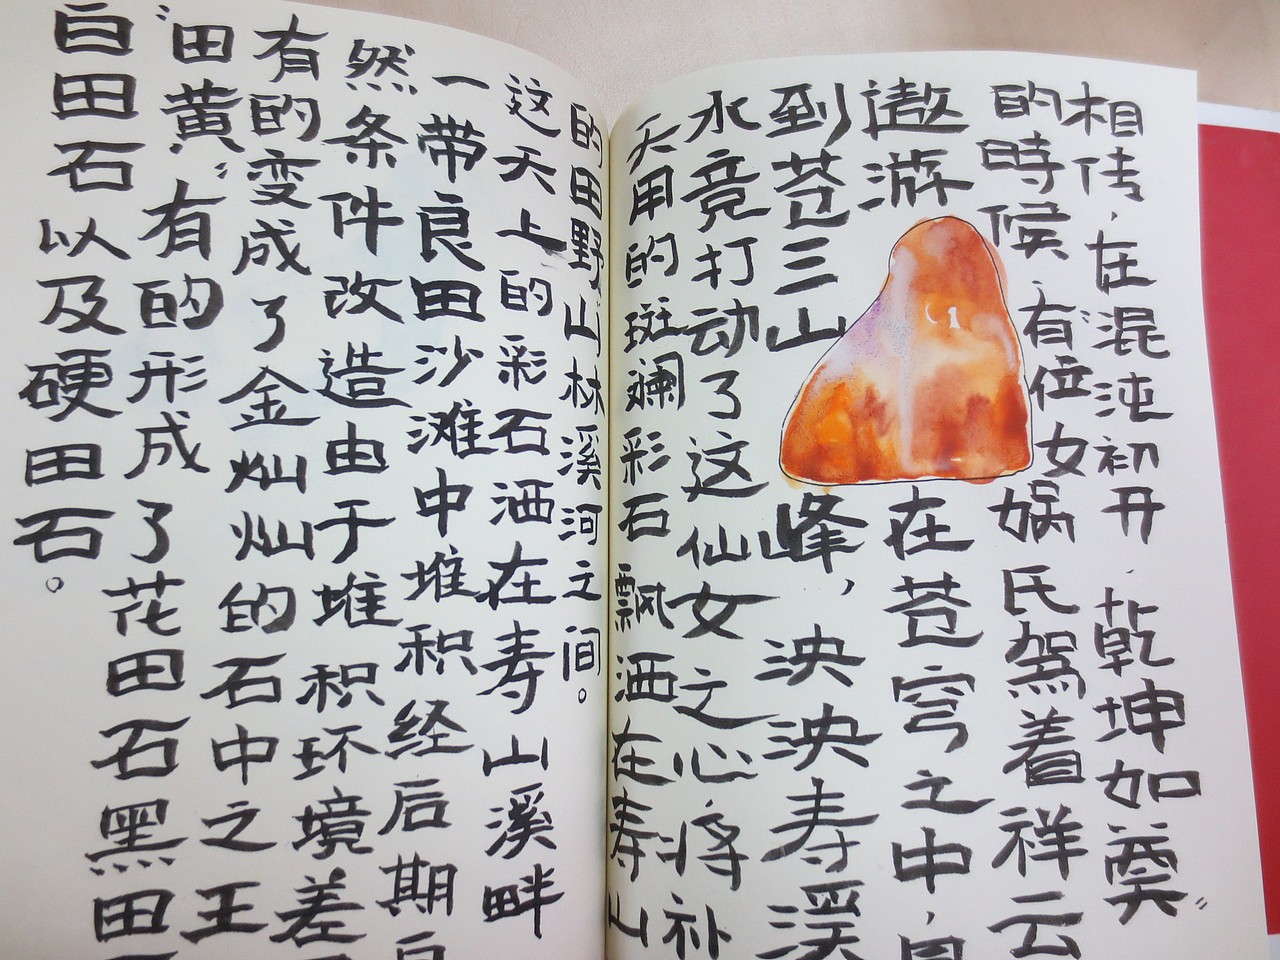 相传，在“混沌初开，乾坤如奠”
的時候，有位女娲氏驾着祥云
遨游在苍穹之中，
到苍三山峰，泱泱寿溪
水竟打动了这仙女之心将补
天用的斑斓彩石飘洒在寿山
的田野山林溪河之间。
这天上的彩石洒在寿山溪畔
一带良田沙滩中堆积经后期
然条件改造由于堆积环境差
有的变成了金灿灿的石中之王
“田黄”有的形成了花田石黑田
白田石以及硬田石。